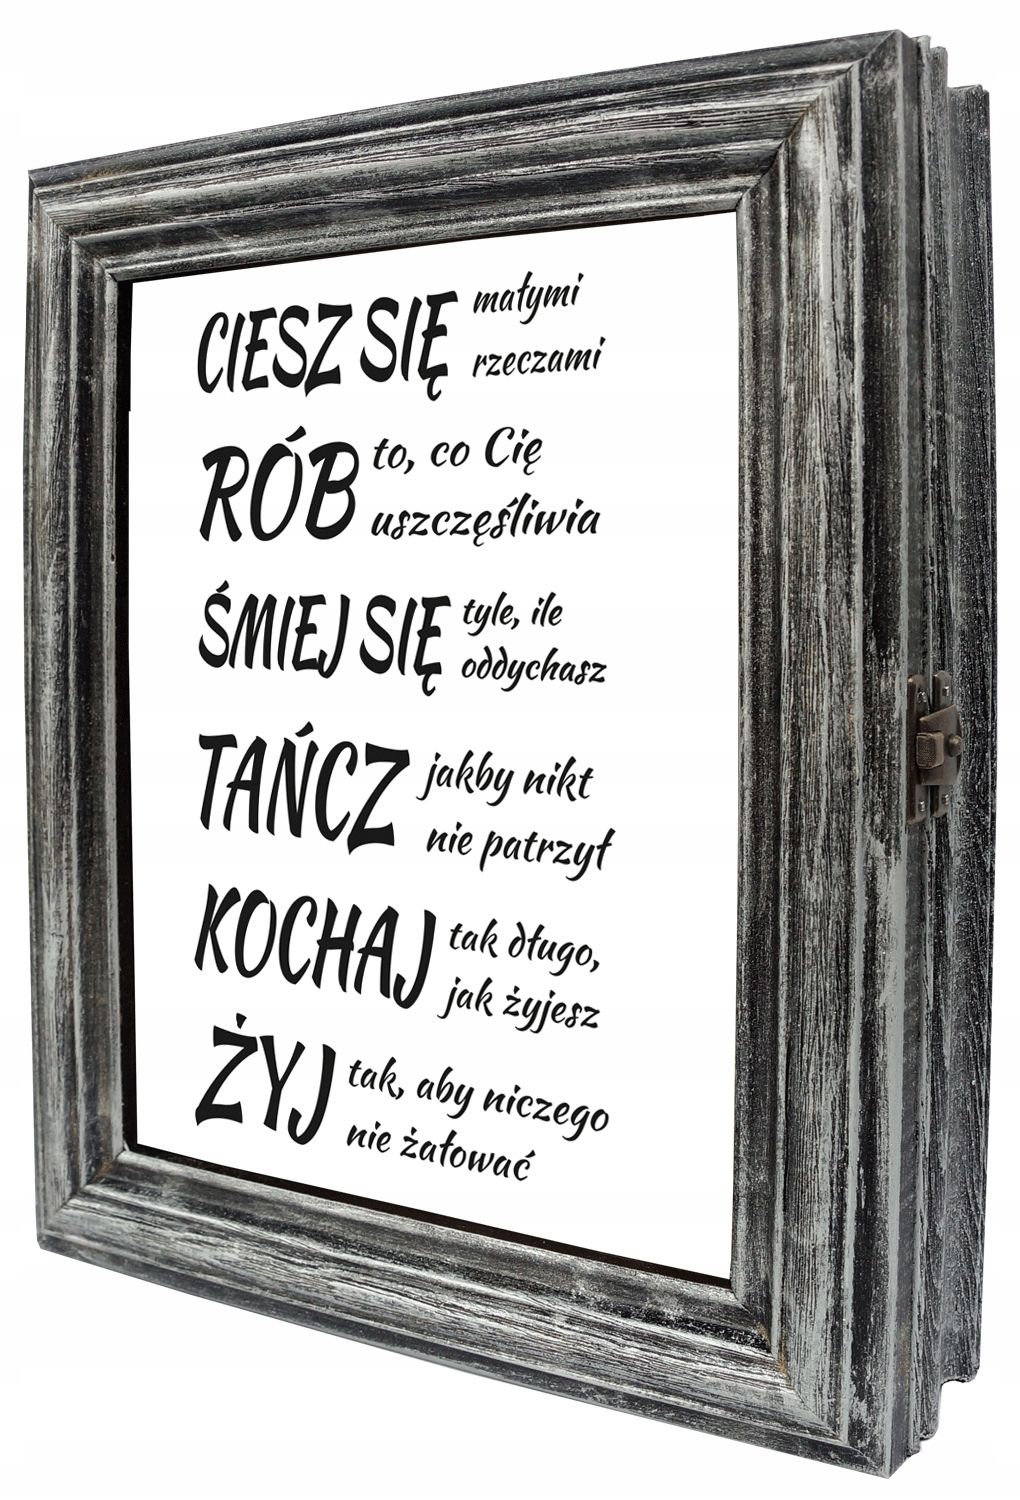 CIESZ SIĘ małymi
rzeczami
RÓB to, co Cię
uszczęśliwia
ŚMIEJ SIĘ tyle, ile
oddychasz
TAŃCZ jakby nikt
nie patrzył
KOCHAJ tak długo,
jak żyjesz
ŻYJ tak, aby niczego
nie żałować